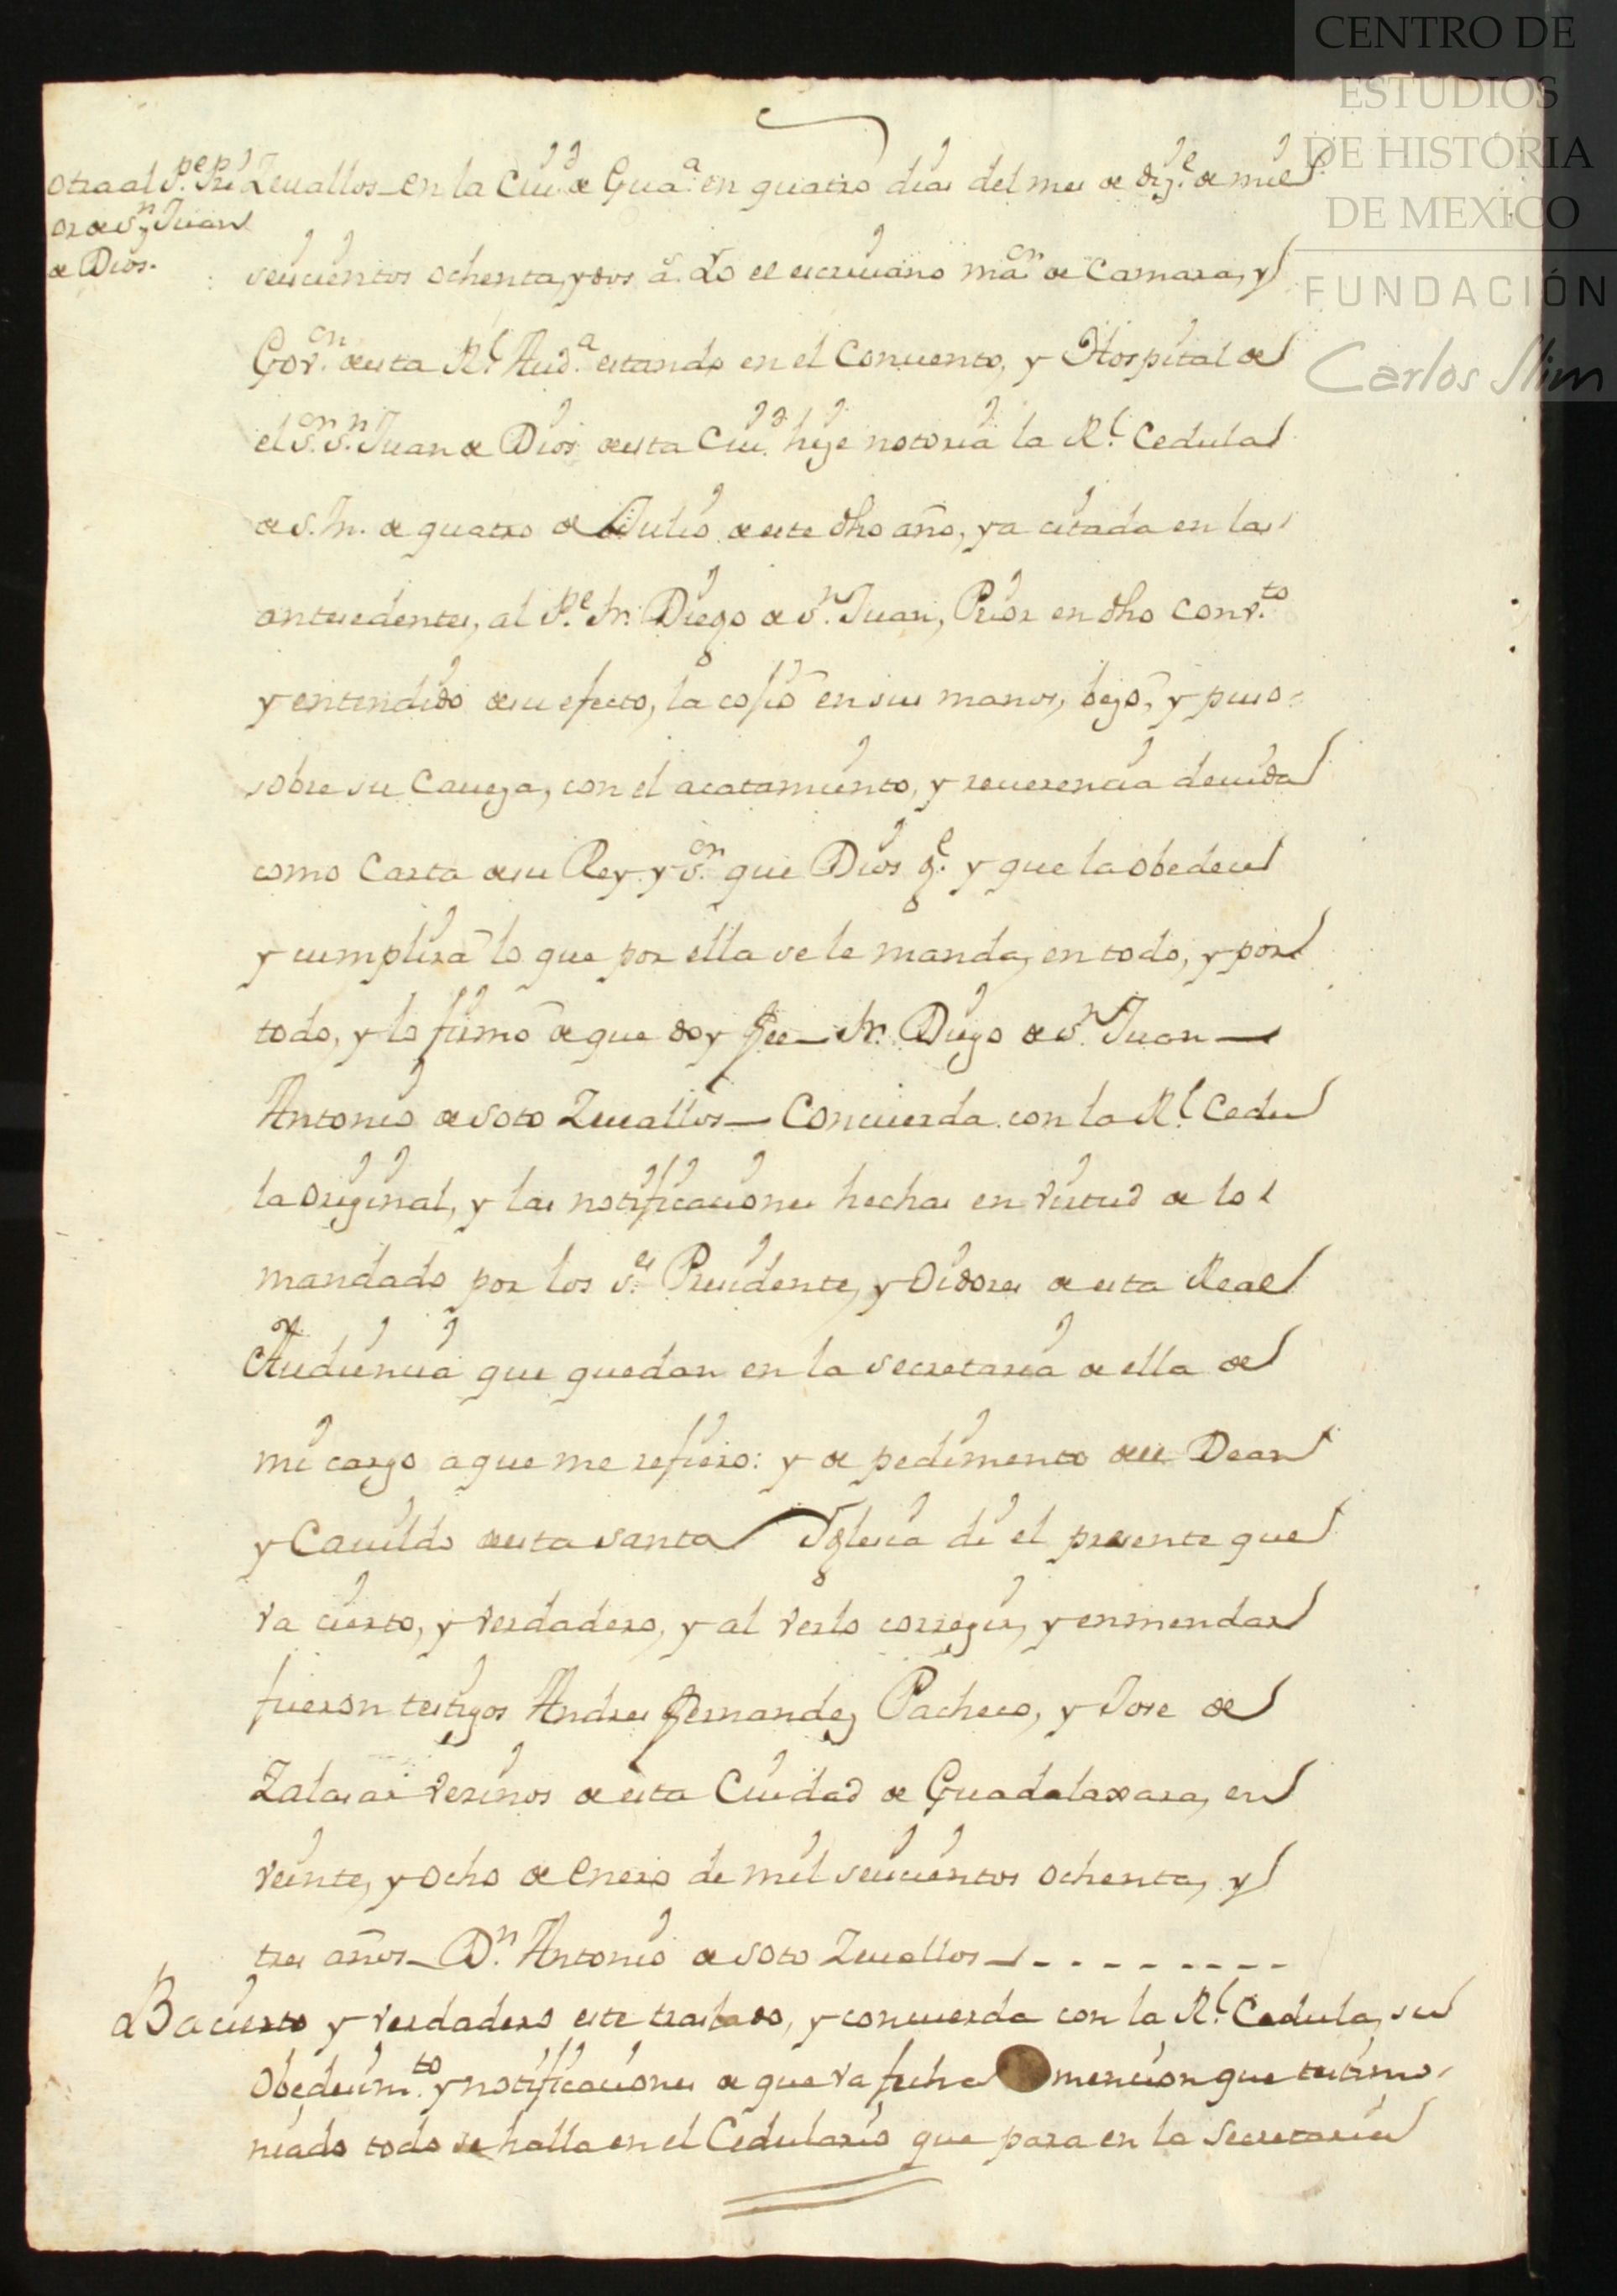 CENTRO DE
ESTUDIOS
DE HISTORIA
DE MEXICO
FUNDACIÓN
Carlos Slim
otra al P.e Pri
or de S.n Juan
de Dios.
Zeuallos en la Ciu.d de Gua.a en quatro dias del mes de diz.e de mil
seiscientos ochenta, y dos a.s Yo el escriuano ma.or de Camara, y
Gov.on desta R.l Aud.a estando en el Conuento, y Hospital de
el S.or S.n Juan de Dios desta Ciu.d hize notoria la R.l Cedula
de S. M. de quatro de Julio de este dho año, ya citada en las
antesedentes, al P.e Fr. Diego de S.n Juan, Prior en dho Conv.to
y entendido de su efecto, la cojió en sus manos, bezó, y puso
sobre su Caueza, con el acatamiento, y reuerencia deuida
como Carta de su Rey, y S.or que Dios g.e y que la obedece
y cumplirá lo que por ella se le manda, en todo, y por
todo, y lo firmó de que doy fee Fr. Diego de S.n Juan
Antonio de Soto Zeuallos Concuerda con la R.l Cedu
la original, y las notificaciones hechas en virtud de lo
mandado por los S.es Presidente, y Oidores de esta Real
Audiencia que quedan en la secretaria de ella de
mi cargo a que me refiero: y de pedimento del Dean
y Cauildo desta santa Iglesia di el presente que
va cierto, y verdadero, y al verlo corregir, y enmendar
fueron testigos Andres fernandez Pacheco, y Jose de
Zalasar vesinos de esta Ciudad de Guadalaxara, en
veinte, y ocho de Enero de mil seiscientos ochenta, y
tres años D.n Antonio de Soto Zeuallos
Ba cierto y verdadero este traslado, y concuerda con la R.l Cedula, su
obedecim.to y notificaciones de que va fecha mencion que testimo
niado todo se halla en el Cedulario que para en la Secretaria